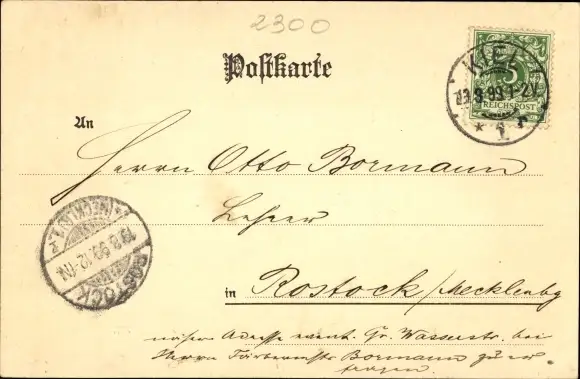 2300
Postkarte
KIEL
5
13.8.99.1-2V.
REICHSPOST
* 1 r
An
Herrn Otto Bormann
Lehrer
ROSTOCK
19.8.99.12-1N.
(MECKLB)
in Rostock / Mecklenbg
nähere Adresse event. Gr. Wasserstr. bei
Herrn Bormann zu er-
fragen